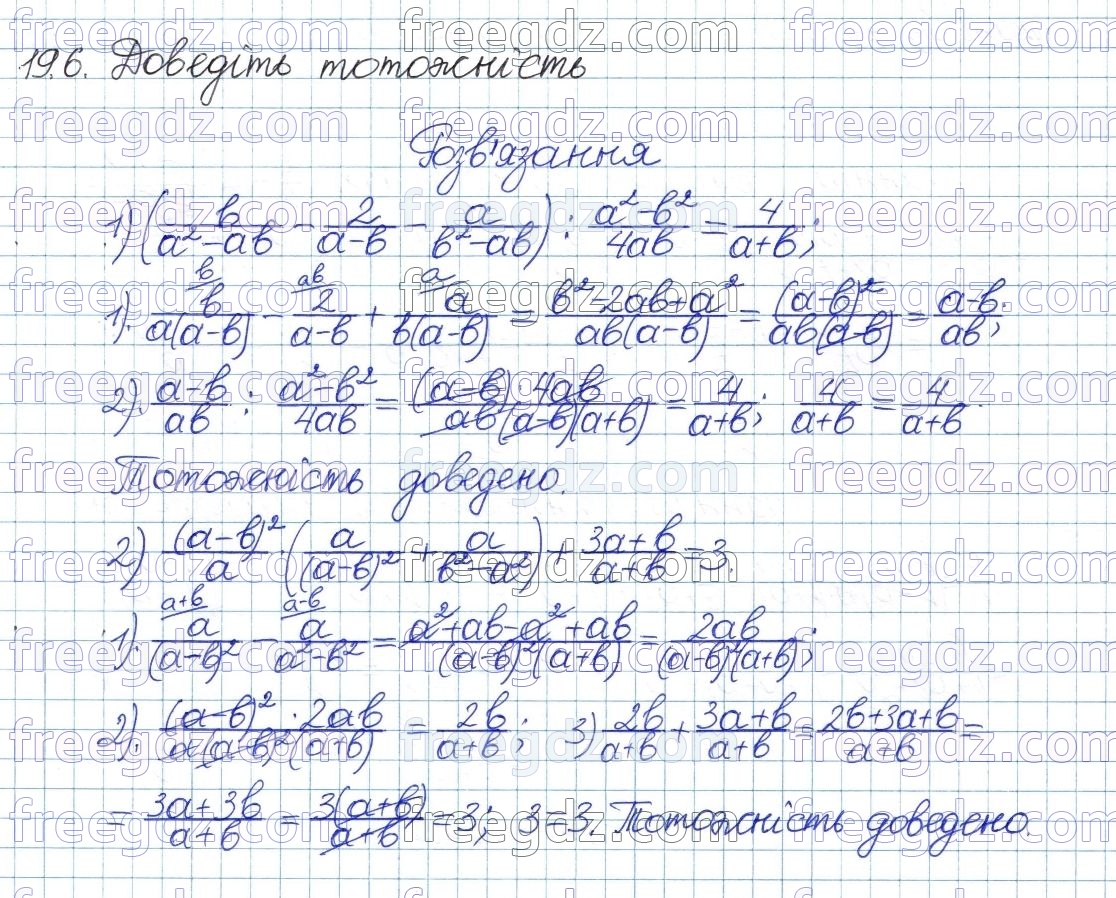 19.6. Доведіть тотожність
Розв'язання
1) (b/(a²-ab) - 2/(a-b) - a/(b²-ab)) : (a²-b²)/(4ab) = 4/(a+b);
1). b/ b/(a(a-b)) - ab/ 2/(a-b) + a/ a/(b(a-b)) = (b²-2ab+a²)/(ab(a-b)) = (a-b)²/(ab(a-b)) = (a-b)/(ab);
2). (a-b)/(ab) : (a²-b²)/(4ab) = ((a-b)·4ab)/(ab(a-b)(a+b)) = 4/(a+b); 4/(a+b) = 4/(a+b).
Тотожність доведено.
2) (a-b)²/a · (a/(a-b)² + a/(b²-a²)) + (3a+b)/(a+b) = 3.
1). a+b/ a/(a-b)² - a-b/ a/(a²-b²) = (a²+ab-a²+ab)/((a-b)²(a+b)) = 2ab/((a-b)²(a+b));
2). ((a-b)²·2ab)/(a(a-b)²(a+b)) = 2b/(a+b); 3) 2b/(a+b) + (3a+b)/(a+b) = (2b+3a+b)/(a+b) =
= (3a+3b)/(a+b) = 3(a+b)/(a+b) = 3; 3=3. Тотожність доведено.
freegdz.com